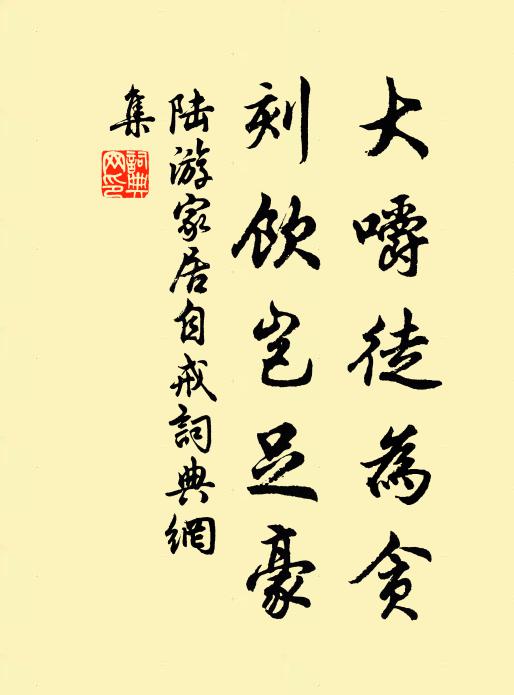 大嚼徒為貪
刻飲豈足豪
陆游家居自戒詞典網
集
詞典
网印